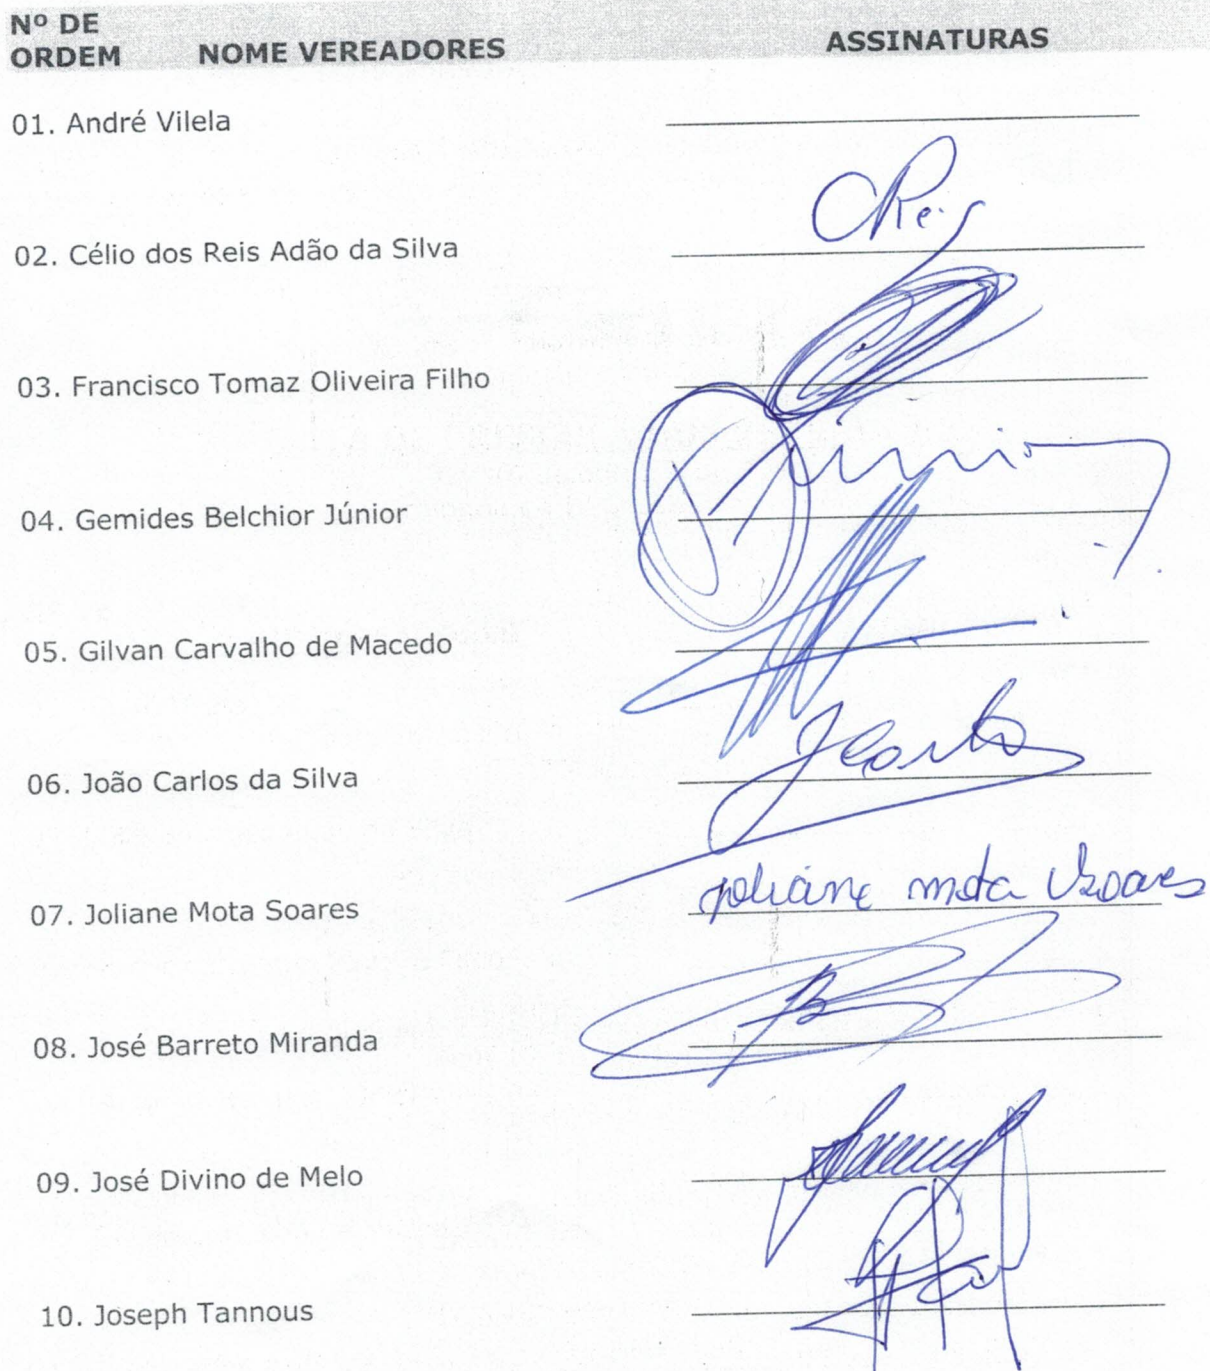 Nº DE
ORDEM NOME VEREADORES ASSINATURAS
01. André Vilela
02. Célio dos Reis Adão da Silva CReis
03. Francisco Tomaz Oliveira Filho
04. Gemides Belchior Júnior Júnior
05. Gilvan Carvalho de Macedo
06. João Carlos da Silva
07. Joliane Mota Soares Joliane Mota Soares
08. José Barreto Miranda
09. José Divino de Melo
10. Joseph Tannous